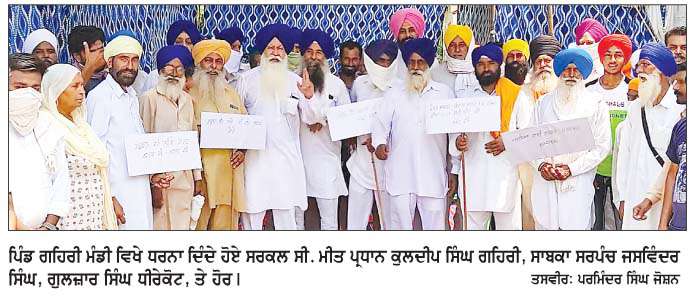 ਪਿੰਡ ਗਹਿਰੀ ਮੰਡੀ ਵਿਖੇ ਧਰਨਾ ਦਿੰਦੇ ਹੋਏ ਸਰਕਲ ਸੀ. ਮੀਤ ਪ੍ਰਧਾਨ ਕੁਲਦੀਪ ਸਿੰਘ ਗਹਿਰੀ, ਸਾਬਕਾ ਸਰਪੰਚ ਜਸਵਿੰਦਰ
ਸਿੰਘ, ਗੁਲਜ਼ਾਰ ਸਿੰਘ ਧੀਰੇਕੋਟ, ਤੇ ਹੋਰ।
ਤਸਵੀਰ: ਪਰਮਿੰਦਰ ਸਿੰਘ ਜੋਸ਼ਨ